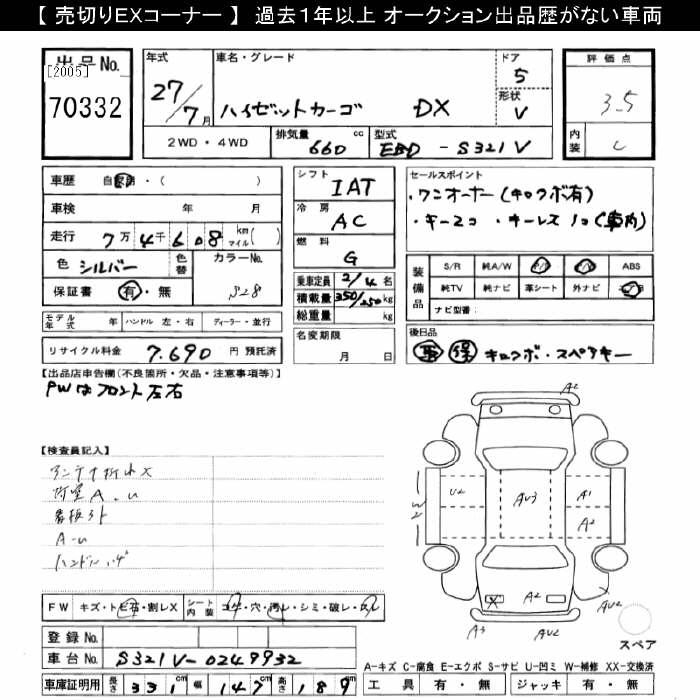 【 売切りEXコーナー 】 過去1年以上 オークション出品歴がない車両
出品No.
[2005]
70332
年式
27/7月
車名・グレード
ハイゼットカーゴ DX
ドア
5
形状
V
評価点
3.5
内装
C
2WD・4WD
排気量 660 cc
型式 EBD - S321V
車歴 自家用・( )
車検 年 月
走行 7万4千608 km マイル( )
色 シルバー
色替
カラーNo.
S28
保証書 有・無
シフト
IAT
冷房
AC
燃料
G
乗車定員 2/4 名
積載量 350/250 kg
総重量 kg
名変期限
月 日
セールスポイント
・ワンオーナー(キロクボ有)
・キー2コ ・キーレス1コ(車内)
装備品
S/R 純A/W P/S P/W ABS
純TV 純ナビ 革シート 外ナビ エアB
ナビ型番:
モデル年式 年 ハンドル 左・右 ディーラー・並行
リサイクル料金 7.690 円 預託済
後日品
保 キロクボ・スペアキー
【出品店申告欄(不良箇所・欠品・注意事項等)】
PWはフロント左右
【検査員記入】
アンテナ折れX
荷室A.U
看板跡
A-U
ハンドルハゲ
A2
U2
W2
AU3
A1
A2
X
A2
AU2
A3
AU2
スペア
FW キズ・トビ石・割レX
シート内装 コゲ・穴・汚レ・シミ・破レ・スレ
登録No.
車台No. S321V-0249932
車庫証明用 長さ 331 cm 幅 147 cm 高さ 189 cm
A-キズ C-腐食 E-エクボ S-サビ U-凹ミ W-補修 XX-交換済
工具 有・無 ジャッキ 有・無